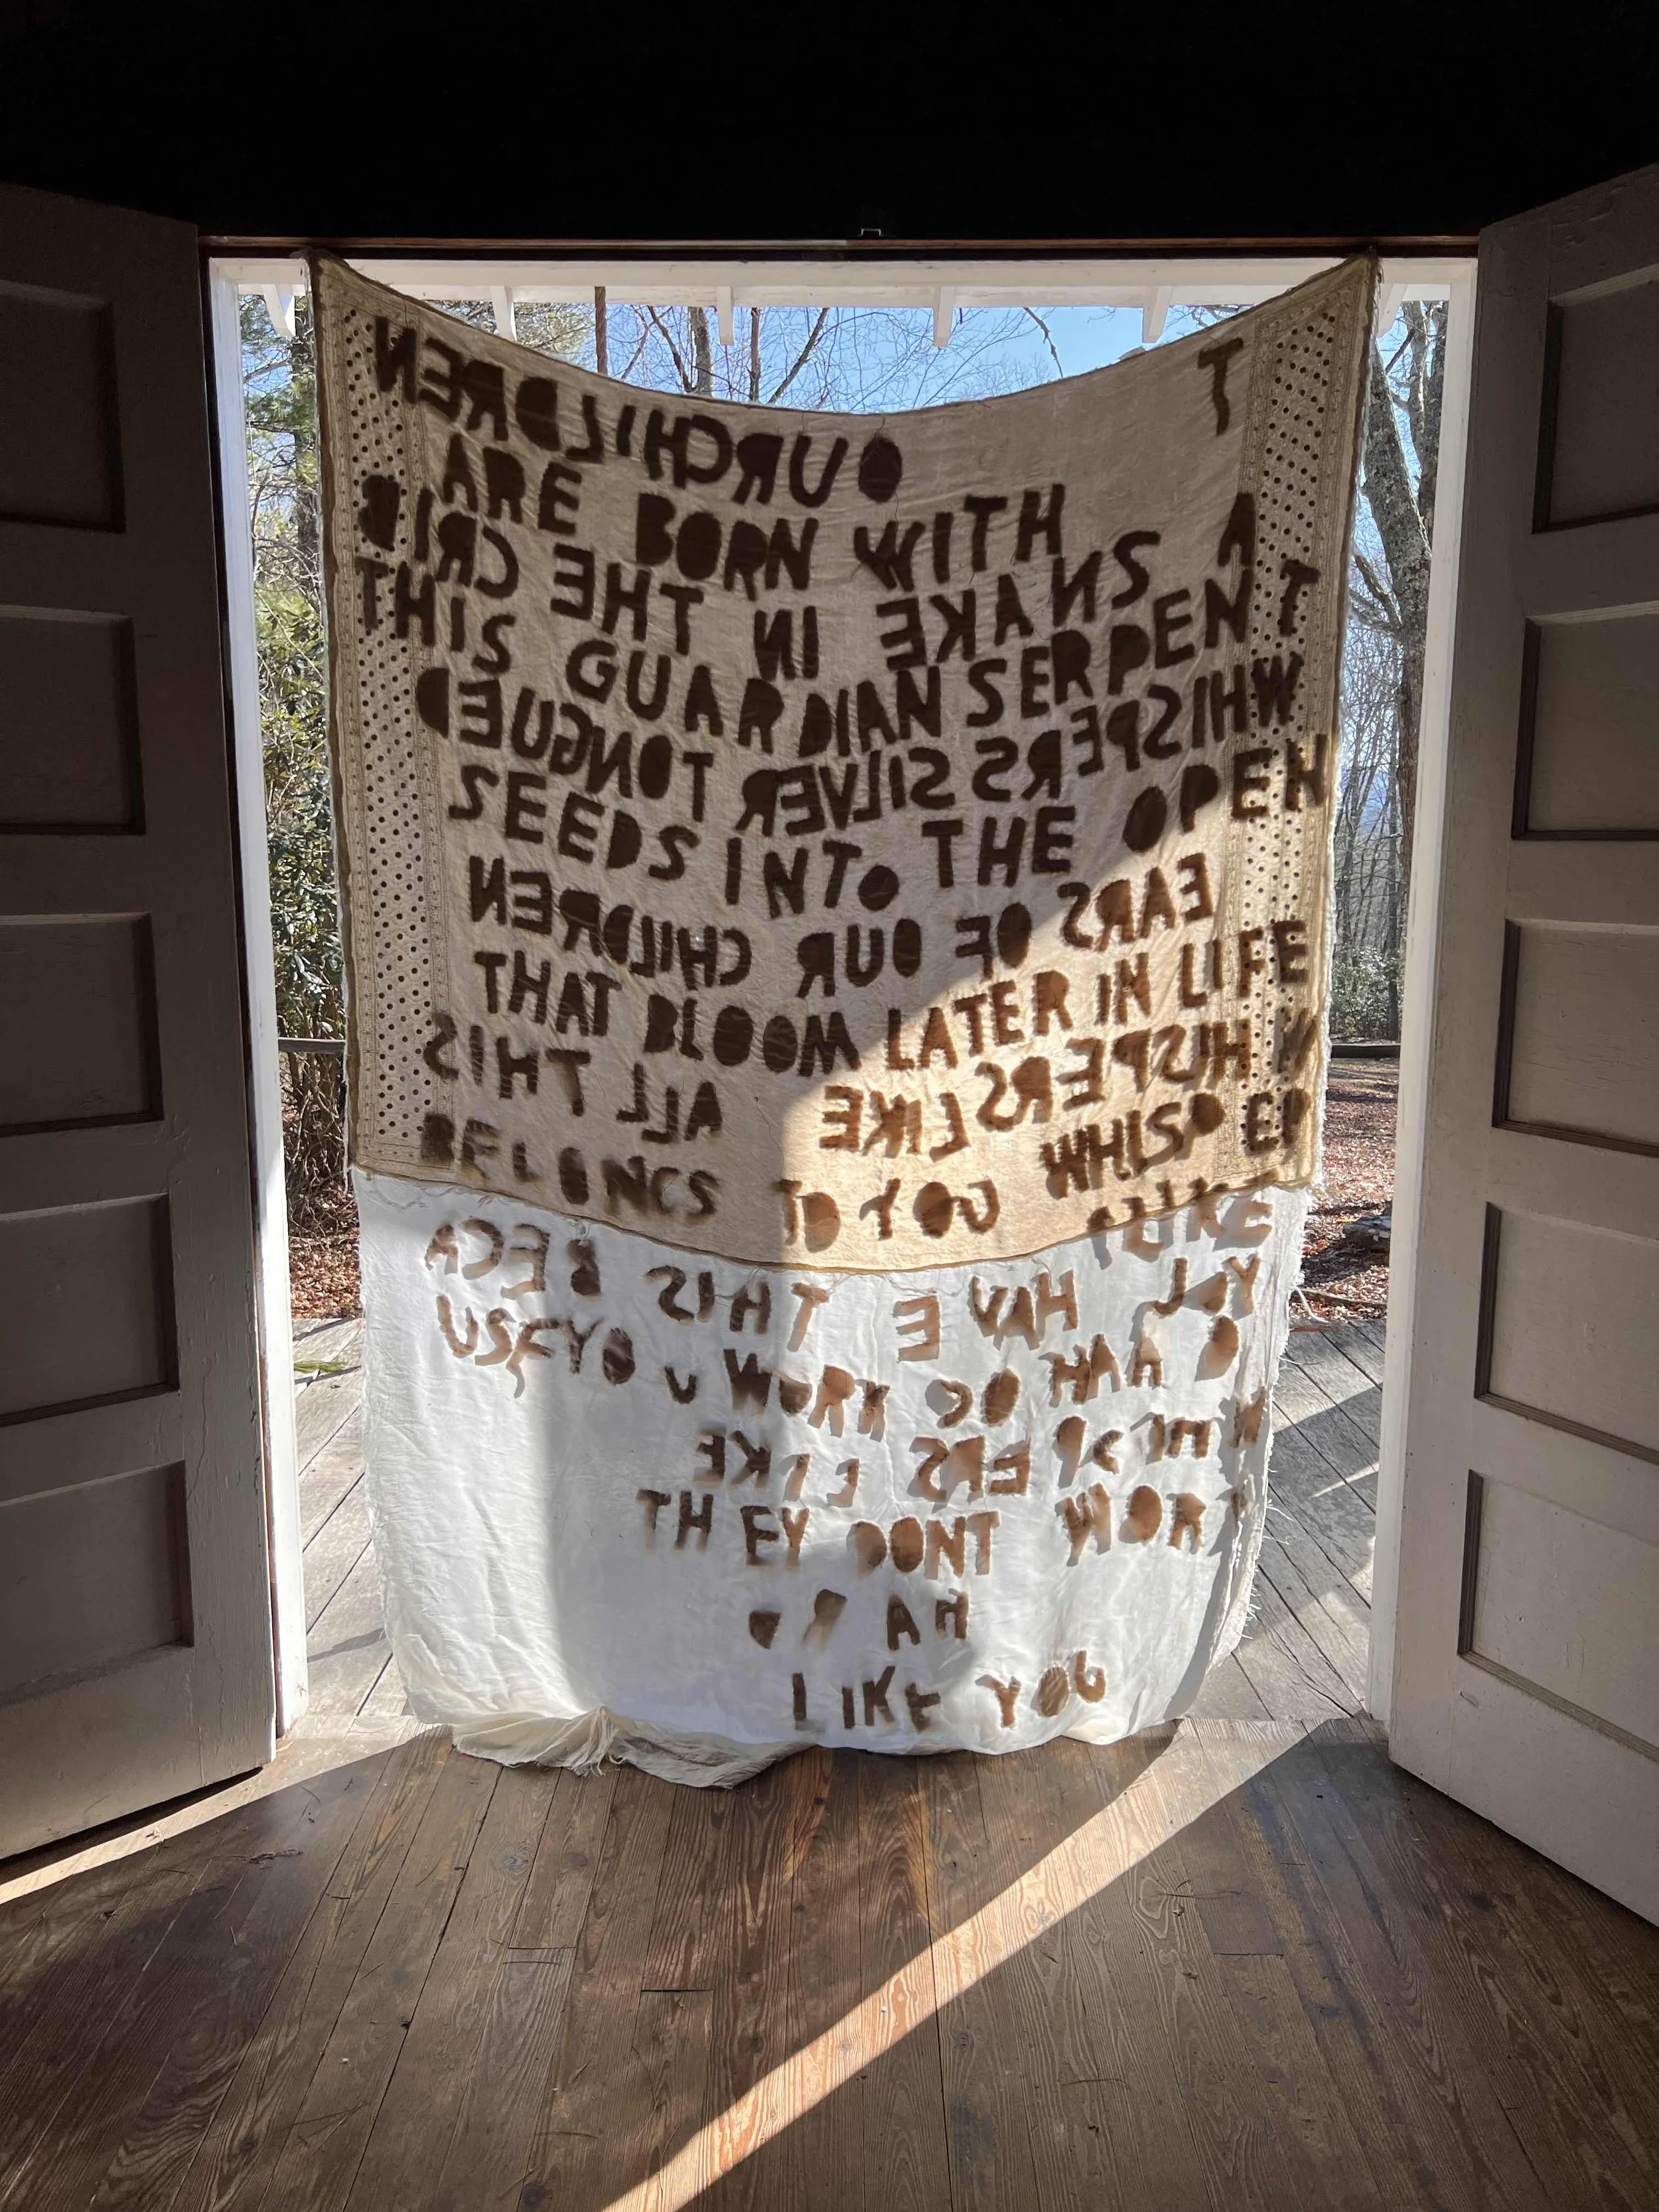 T OURCHILDREN
ARE BORN WITH A
SNAKE IN THE CRIB
THIS GUARDIAN SERPENT
WHISPERS SILVER TONGUED
SEEDS INTO THE OPEN
EARS OF OUR CHILDREN
THAT BLOOM LATER IN LIFE
WHISPERS LIKE ALL THIS
BELONGS TO YOU WHISPER
LIKE
YOU HAVE THIS BECA
USE YOU WORK SO HA
WHISPERS LIKE
THEY DONT WORK
HA
LIKE YOU